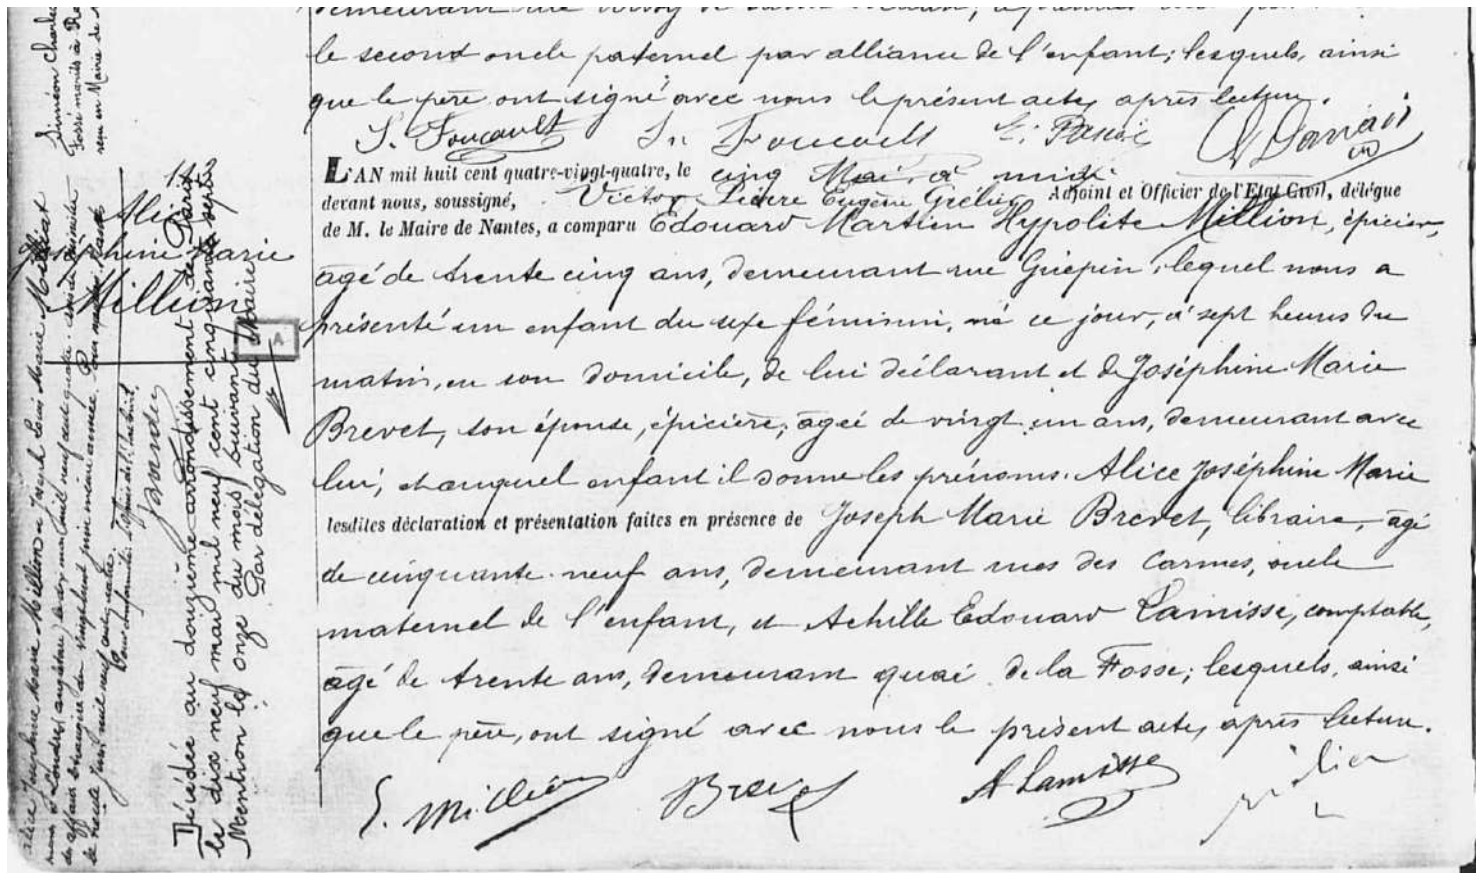 demeurant rue
le second oncle paternel par alliance de l'enfant; lesquels, ainsi
que le père ont signé avec nous le présent acte, après lecture.
S. Foucault Foucault E. Pascal
L'AN mil huit cent quatre-vingt-quatre, le cinq Mai, à midi
devant nous, soussigné, Victor Pierre Eugène Grélier Adjoint et Officier de l'Etat Civil, délégué
de M. le Maire de Nantes, a comparu Edouard Martin Hypolite Million, épicier,
âgé de trente cinq ans, demeurant rue Guépin, lequel nous a
présenté un enfant du sexe féminin, né ce jour, à sept heures du
matin, en son domicile, de lui déclarant et de Joséphine Marie
Brevet, son épouse, épicière, âgée de vingt un ans, demeurant avec
lui, et auquel enfant il donne les prénoms: Alice Joséphine Marie
lesdites déclaration et présentation faites en présence de Joseph Marie Brevet, libraire, âgé
de cinquante-neuf ans, demeurant rues des Carmes, oncle
maternel de l'enfant, et Achille Edouard Lamisse, comptable,
âgé de trente ans, demeurant quai de la Fosse; lesquels, ainsi
que le père, ont signé avec nous le présent acte, après lecture.
E. Million Brevet A Lamisse
Alice
Joséphine Marie
Million
A
Siméon Charles
Alice Joséphine Marie Million a Joseph Louis Marie Milliat
à Londres
mil neuf cent quatre.
Décédée au douzième arrondissement de Paris
le dix neuf mai mil neuf cent cinquante sept
Mention le onze du mois suivant
Par délégation du Maire